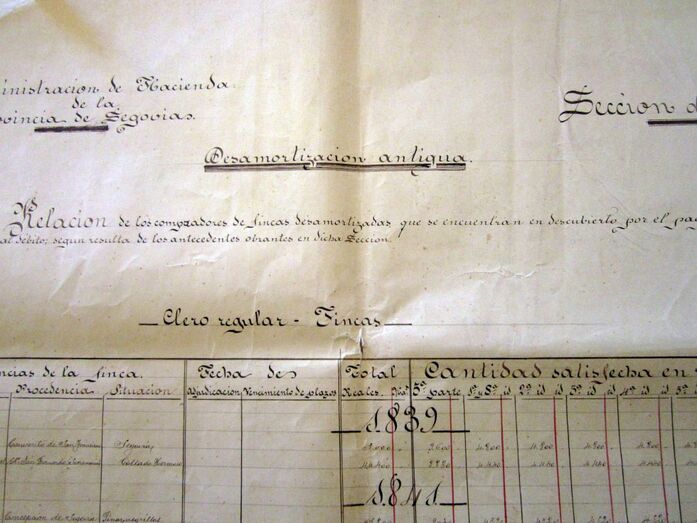 ministracion de Hacienda
de la
ovincia de Segovia.
Seccion d
Desamortizacion antigua.
Relacion de los compradores de fincas desamortizadas que se encuentran en descubierto por el pa
al débito; segun resulta de los antecedentes obrantes en dicha Seccion.
Clero regular - Fincas
ncias de la finca. Fecha de Total Cantidad satisfecha en
Procedencia Situacion adjudicacion Vencimiento de plazos Reales 5ª parte 1ª 8ª id 2ª id id 3ª id id 4ª id id 5ª
1839
Convento de San Segovia 4.800 4.800 4.800 4.800
Collado Hermoso 4.440 4.440 4.440 4.440
1841
Concepcion de Segovia